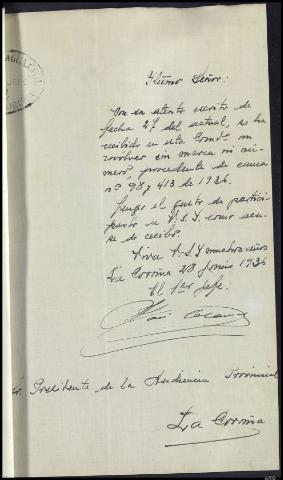 Iltmo Señor:
Con su atento escrito de
fecha 27 del actual, se ha
recibido en esta Comda un
revolver sin marca ni nú-
mero, procedente de causa
nº 98 y 413 de 1936.
Tengo el gusto de partici-
parlo a V.S.I. como acu-
se de recibo.
Viva V.S.I muchos años
La Coruña 28 Junio 1936
El 1er Jefe.
Sr. Presidente de la Audiencia Provincial
La Coruña